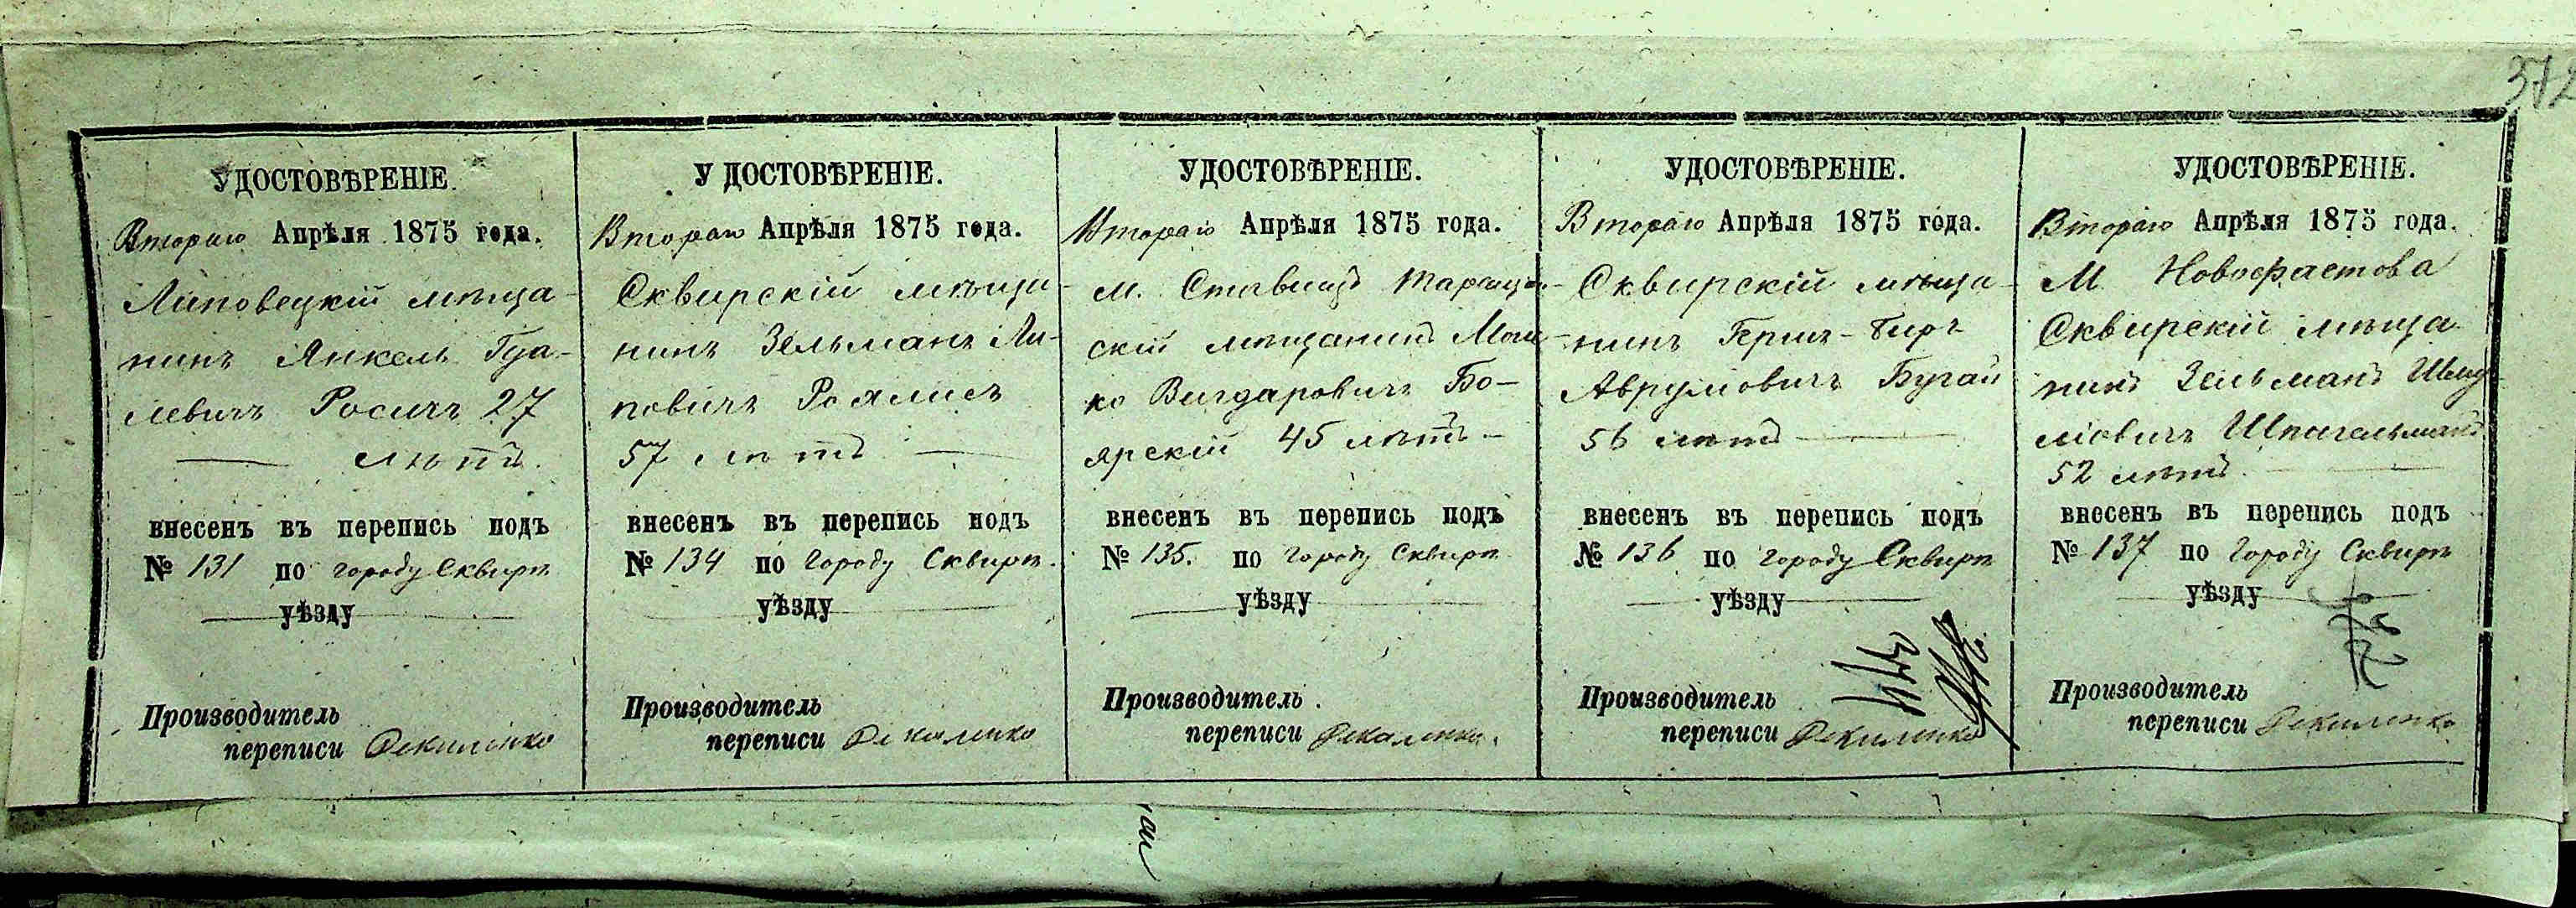 372
УДОСТОВѢРЕНІЕ.
Втораго Апрѣля 1875 года.
Липовецкій мѣща-
нинъ Янкель
левичъ Росичъ 27
лѣтъ.
внесенъ въ перепись подъ
№ 131 по городу Сквирѣ
уѣзду
Производитель
переписи
УДОСТОВѢРЕНІЕ.
Втораго Апрѣля 1875 года.
Сквирскій мѣща-
нинъ Зельманъ Ли-
повичъ
57 лѣтъ
внесенъ въ перепись подъ
№ 134 по городу Сквирѣ.
уѣзду
Производитель
переписи
УДОСТОВѢРЕНІЕ.
Втораго Апрѣля 1875 года.
м. Ставищъ Таращан-
скій мѣщанинъ Мош-
ко Вигдаровичъ Бо-
ярскій 45 лѣтъ
внесенъ въ перепись подъ
№ 135. по городу Сквирѣ
уѣзду
Производитель
переписи
УДОСТОВѢРЕНІЕ.
Втораго Апрѣля 1875 года.
Сквирскій мѣща-
нинъ Герш-Биръ
Аврумовичъ Бугай
56 лѣтъ
внесенъ въ перепись подъ
№ 136 по городу Сквирѣ
уѣзду
Производитель
переписи
УДОСТОВѢРЕНІЕ.
Втораго Апрѣля 1875 года.
М. Новофастова
Сквирскій мѣща-
нинъ Зельманъ Шму-
ліовичъ Шпигельманъ
52 лѣтъ
внесенъ въ перепись подъ
№ 137 по городу Сквирѣ
уѣзду
Производитель
переписи